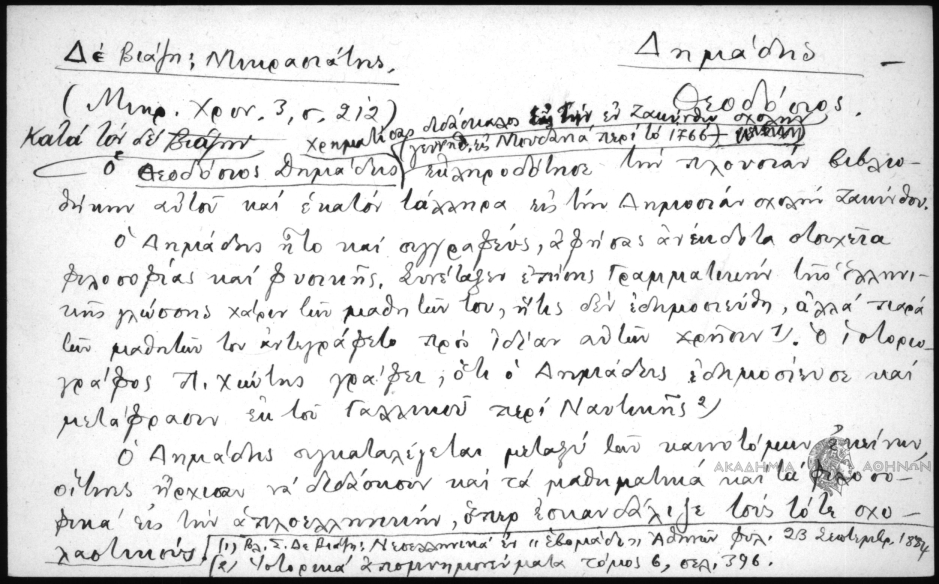 Δέ Βιάζη; Μικρασιάτης,
Δημιάδης
Θεοδόσιος.
(Μικρ. Χρον. 3, σ. 212)
Κατά τόν δέ Βιάζην χρηματίσας διδάσκαλος εἰς τήν ἐν Ζακύνθῳ σχολήν
γεννηθ. εἰς Μουδανιά περί τό 1766)
Ὁ Θεοδόσιος Δημιάδης ἐκληροδότησε τήν πλουσίαν βιβλιο-
θήκην αὐτοῦ καί ἑκατόν τάλληρα εἰς τήν Δημοσίαν σχολήν Ζακύνθου.
Ὁ Δημιάδης ἦτο καί συγγραφεύς, ἀφήσας ἀνέκδοτα στοιχεῖα
φιλοσοφίας καί φυσικῆς. Συνέταξεν ἐπίσης Γραμματικήν τῆς ἑλληνι-
κῆς γλώσσης χάριν τῶν μαθητῶν του, ἥτις δέν ἐδημοσιεύθη, ἀλλά παρά
τῶν μαθητῶν του ἀντεγράφετο πρός ἰδίαν αὐτῶν χρῆσιν 1). Ὁ ἱστοριο-
γράφος Π. Χιώτης γράφει, ὅτι ὁ Δημιάδης ἐδημοσίευσε καί
μετάφρασιν ἐκ τοῦ Γαλλικοῦ περί Ναυτικῆς 2)
Ὁ Δημιάδης συγκαταλέγεται μεταξύ τῶν καινοτόμων ἐκείνων,
οἵτινες ἤρχισαν νά διδάσκουν καί τά μαθηματικά καί τά φιλοσο-
φικά εἰς τήν ἁπλοελληνικήν, ὅπερ ἐσκανδάλιζε τούς τότε σχο-
λαστικούς.
(1) Βλ. Σ. Δε Βιάζη: Νεοελληνικά ἐν "Ἑβδομάδι", Ἀθηνῶν φυλ. 23 Σεπτεμβρ. 1884
(2) Ἱστορικά ἀπομνημονεύματα τόμος 6, σελ. 396.
ΑΚΑΔΗΜΙΑ ΑΘΗΝΩΝ